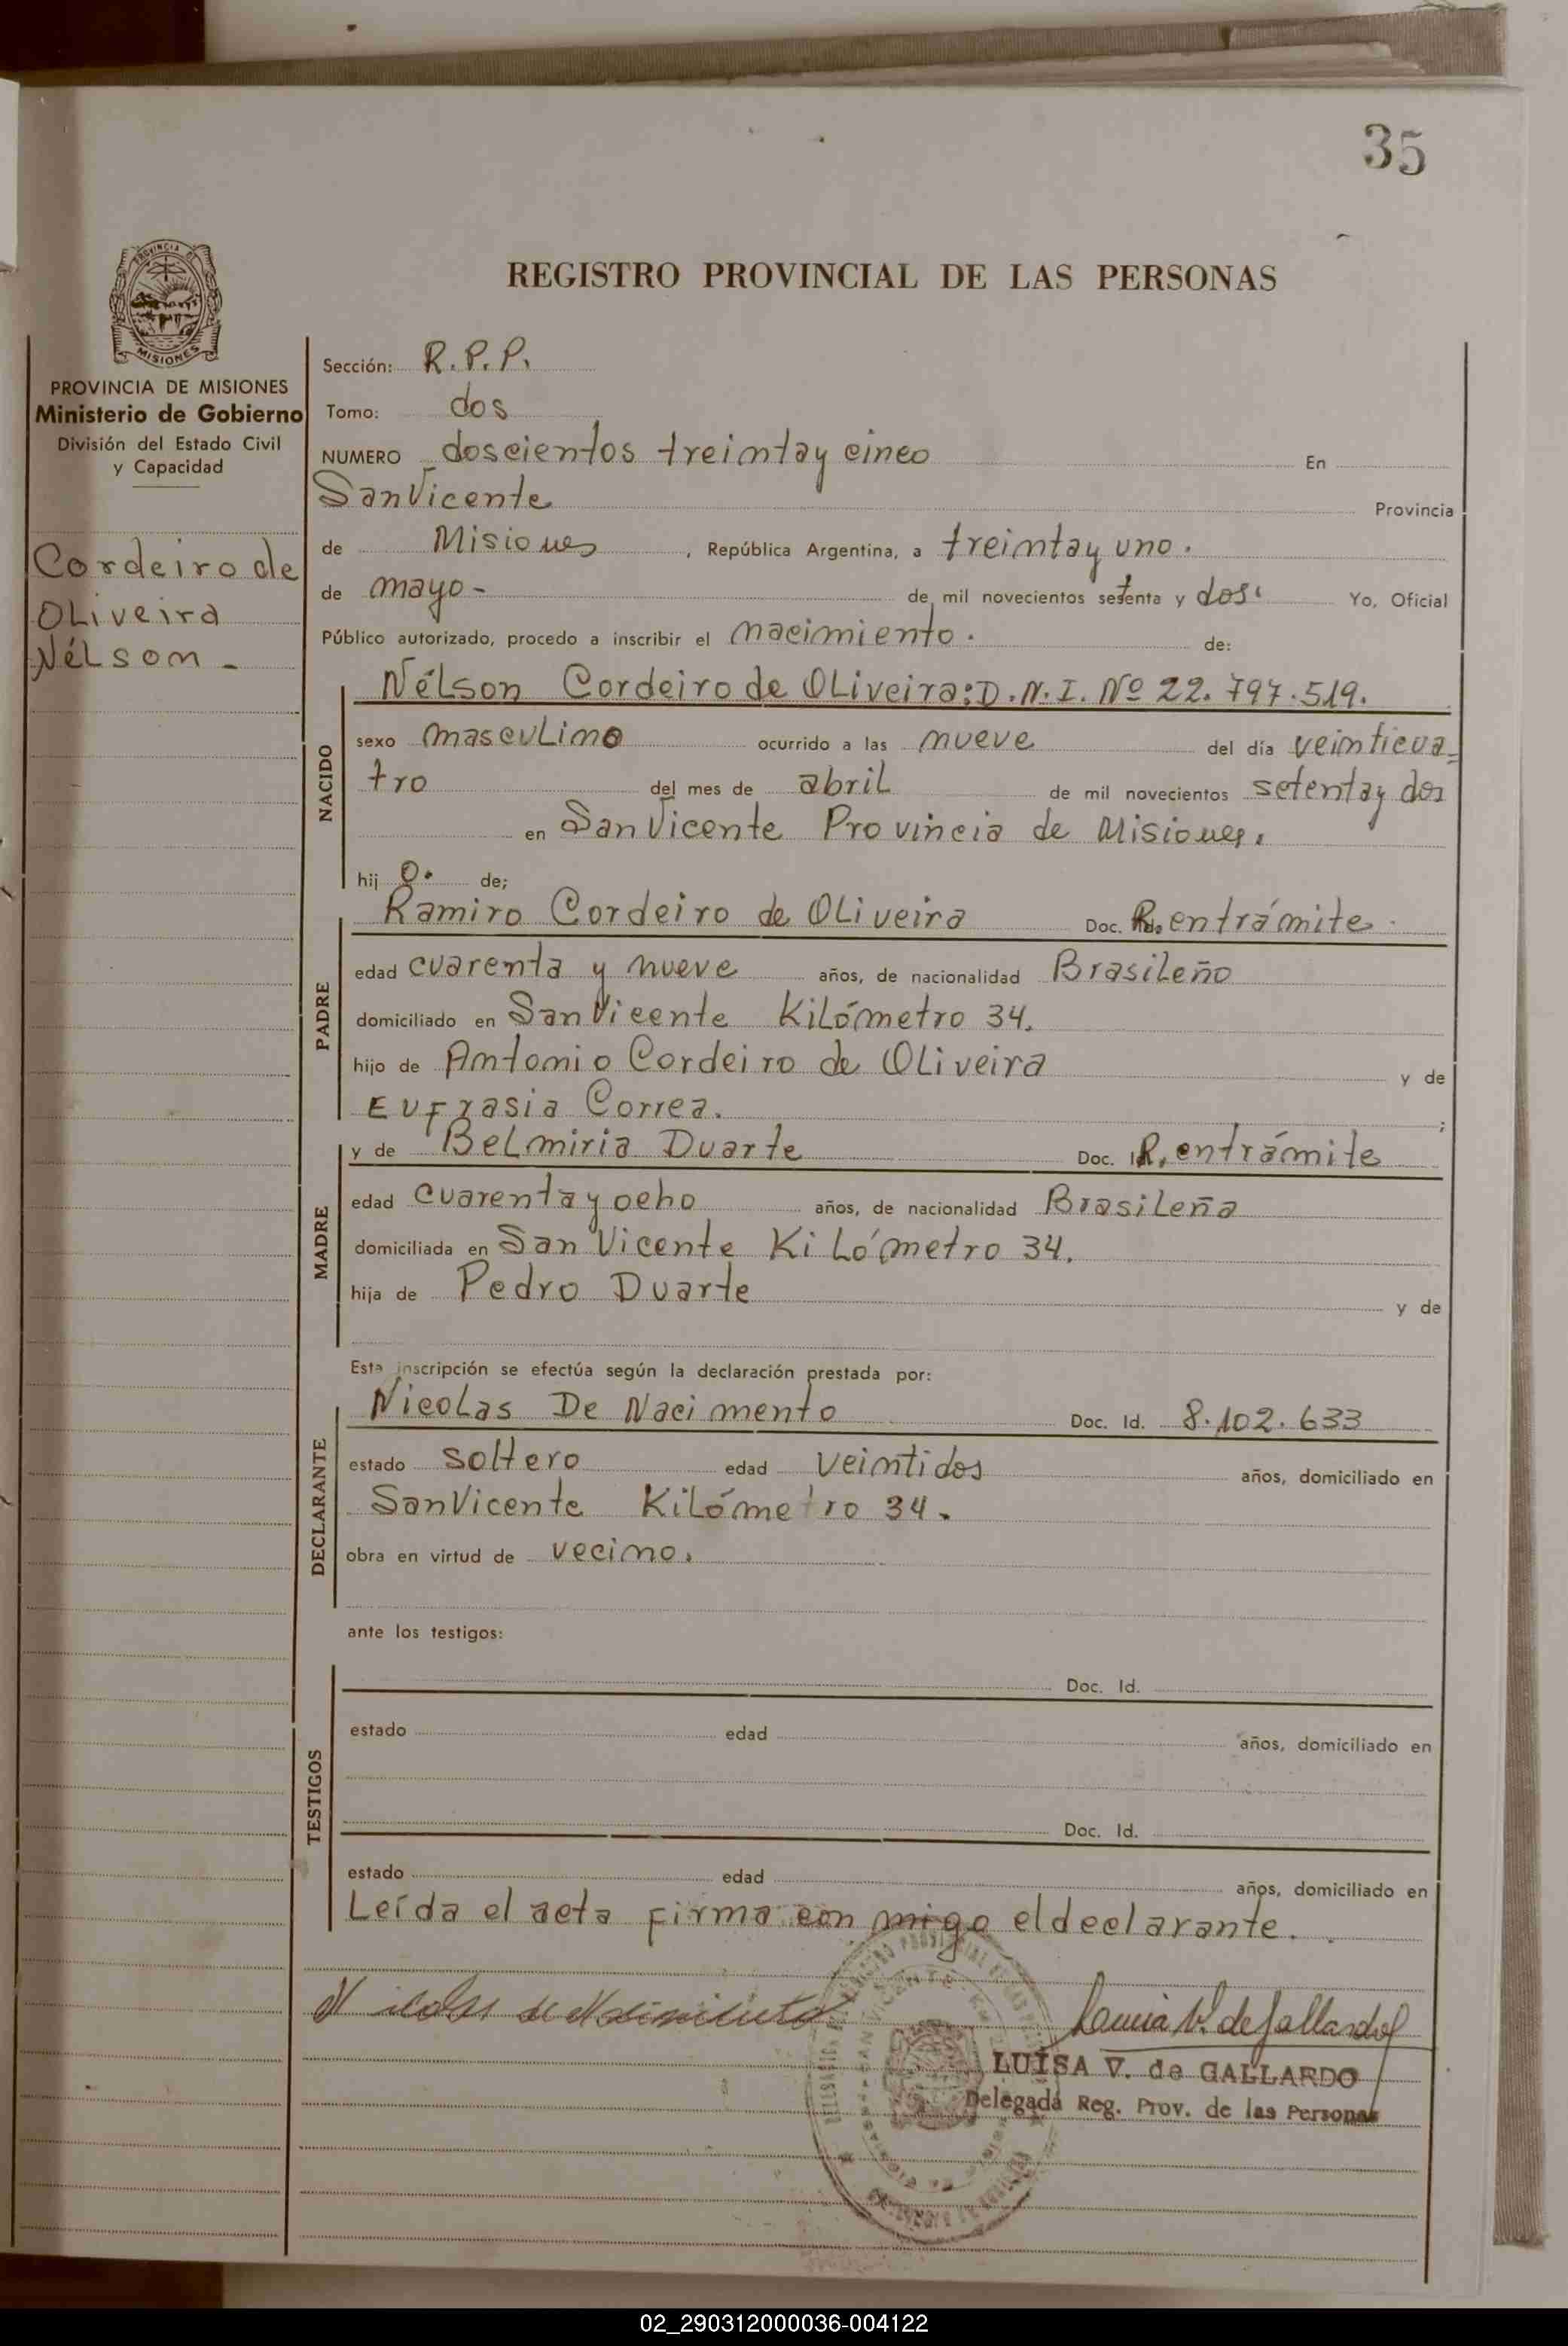 35
PROVINCIA DE
MISIONES
REGISTRO PROVINCIAL DE LAS PERSONAS
PROVINCIA DE MISIONES
Ministerio de Gobierno
División del Estado Civil
y Capacidad
Cordeiro de
Oliveira
Nélson -
Sección: R.P.P.
Tomo: dos
NUMERO doscientos treinta y cinco En
San Vicente Provincia
de Misiones, República Argentina, a treinta y uno.
de mayo - de mil novecientos setenta y dos. Yo, Oficial
Público autorizado, procedo a inscribir el nacimiento. de:
NACIDO
Nélson Cordeiro de Oliveira: D.N.I. Nº 22.797.519.
sexo masculino ocurrido a las nueve del día veinticua=
tro del mes de abril de mil novecientos setenta y dos
en San Vicente Provincia de Misiones.
hij o. de;
PADRE
Ramiro Cordeiro de Oliveira Doc. R. en trámite.
edad cuarenta y nueve años, de nacionalidad Brasileño
domiciliado en San Vicente Kilómetro 34.
hijo de Antonio Cordeiro de Oliveira y de
Eufrasia Correa. ;
MADRE
y de Belmiria Duarte Doc. R. en trámite
edad cuarenta y ocho años, de nacionalidad Brasileña
domiciliada en San Vicente Kilómetro 34.
hija de Pedro Duarte y de
Esta inscripción se efectúa según la declaración prestada por:
DECLARANTE
Nicolas De Nacimento Doc. Id. 8.102.633
estado soltero edad veintidos años, domiciliado en
San Vicente Kilómetro 34.
obra en virtud de vecino.
ante los testigos:
TESTIGOS
Doc. Id.
estado edad años, domiciliado en
Doc. Id.
estado edad años, domiciliado en
Leída el acta firma con migo el declarante.
Nicolas de
V. de Gallardo
LUISA V. de GALLARDO
Delegada Reg. Prov. de las Personas
02_290312000036-004122